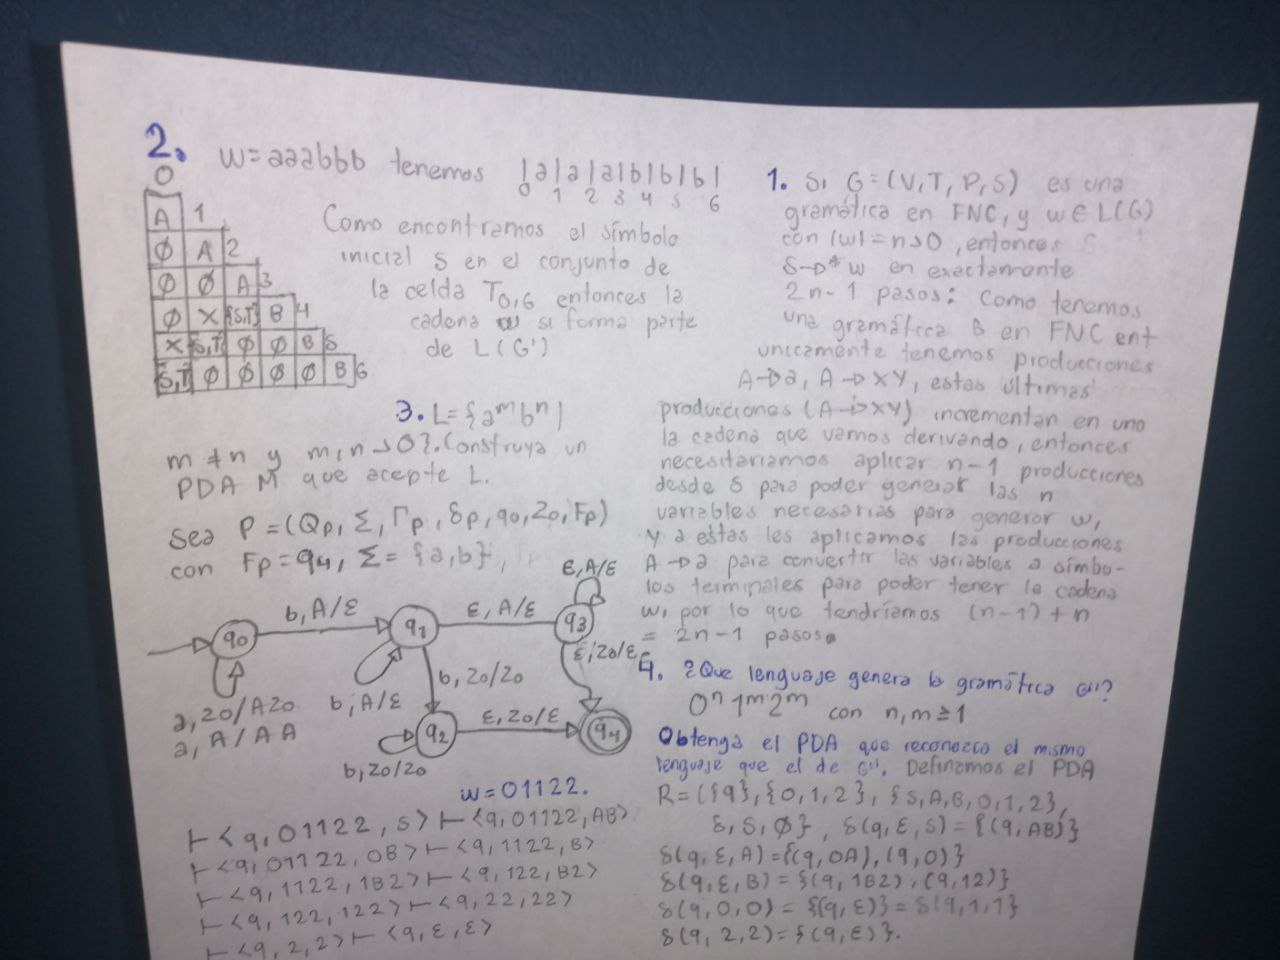 2. w=aaabbb tenemos |a|a|a|b|b|b|
0 1 2 3 4 5 6
0
A 1
∅ A 2
∅ ∅ A 3
∅ X {S,T} B 4
X S,T ∅ ∅ B 5
S,T ∅ ∅ ∅ ∅ B 6
Como encontramos el símbolo
inicial S en el conjunto de
la celda T0,6 entonces la
cadena w si forma parte
de L(G')
3. L={a^m b^n |
m ≠ n y m,n > 0}. Construya un
PDA M que acepte L.
Sea P=(Qp, Σ, Γp, δp, q0, Z0, Fp)
con Fp=q4, Σ={a,b},
q0 q1 q3
b, A/ε
ε, A/ε
ε, A/ε
a, Z0/AZ0
a, A/AA
b, A/ε
b, Z0/Z0
ε, Z0/ε
q2 q4
ε, Z0/ε
b, Z0/Z0
w=01122.
⊢<q, 01122, S>⊢<q, 01122, AB>
⊢<q, 01122, 0B>⊢<q, 1122, B>
⊢<q, 1122, 1B2>⊢<q, 122, B2>
⊢<q, 122, 122>⊢<q, 22, 22>
⊢<q, 2, 2>⊢<q, ε, ε>
1. Si G=(V,T,P,S) es una
gramática en FNC, y w∈L(G)
con |w|=n>0, entonces
S→* w en exactamente
2n-1 pasos: Como tenemos
una gramática G en FNC ent
unicamente tenemos producciones
A→a, A→XY, estas ultimas
producciones (A→XY) incrementan en uno
la cadena que vamos derivando, entonces
necesitariamos aplicar n-1 producciones
desde S para poder generar las n
variables necesarias para generar w,
y a estas les aplicamos las producciones
A→a para convertir las variables a símbo-
los terminales para poder tener la cadena
w, por lo que tendríamos (n-1)+n
= 2n-1 pasos.
4. ¿Que lenguaje genera la gramática G''?
0^n 1^m 2^m con n,m≥1
Obtenga el PDA que reconozca el mismo
lenguaje que el de G''. Definamos el PDA
R=({q},{0,1,2},{S,A,B,0,1,2},
δ,S,∅}, δ(q,ε,S)={(q,AB)}
δ(q,ε,A)={(q,0A),(q,0)}
δ(q,ε,B)={(q,1B2),(q,12)}
δ(q,0,0)={(q,ε)}=δ(q,1,1}
δ(q,2,2)={(q,ε)}.